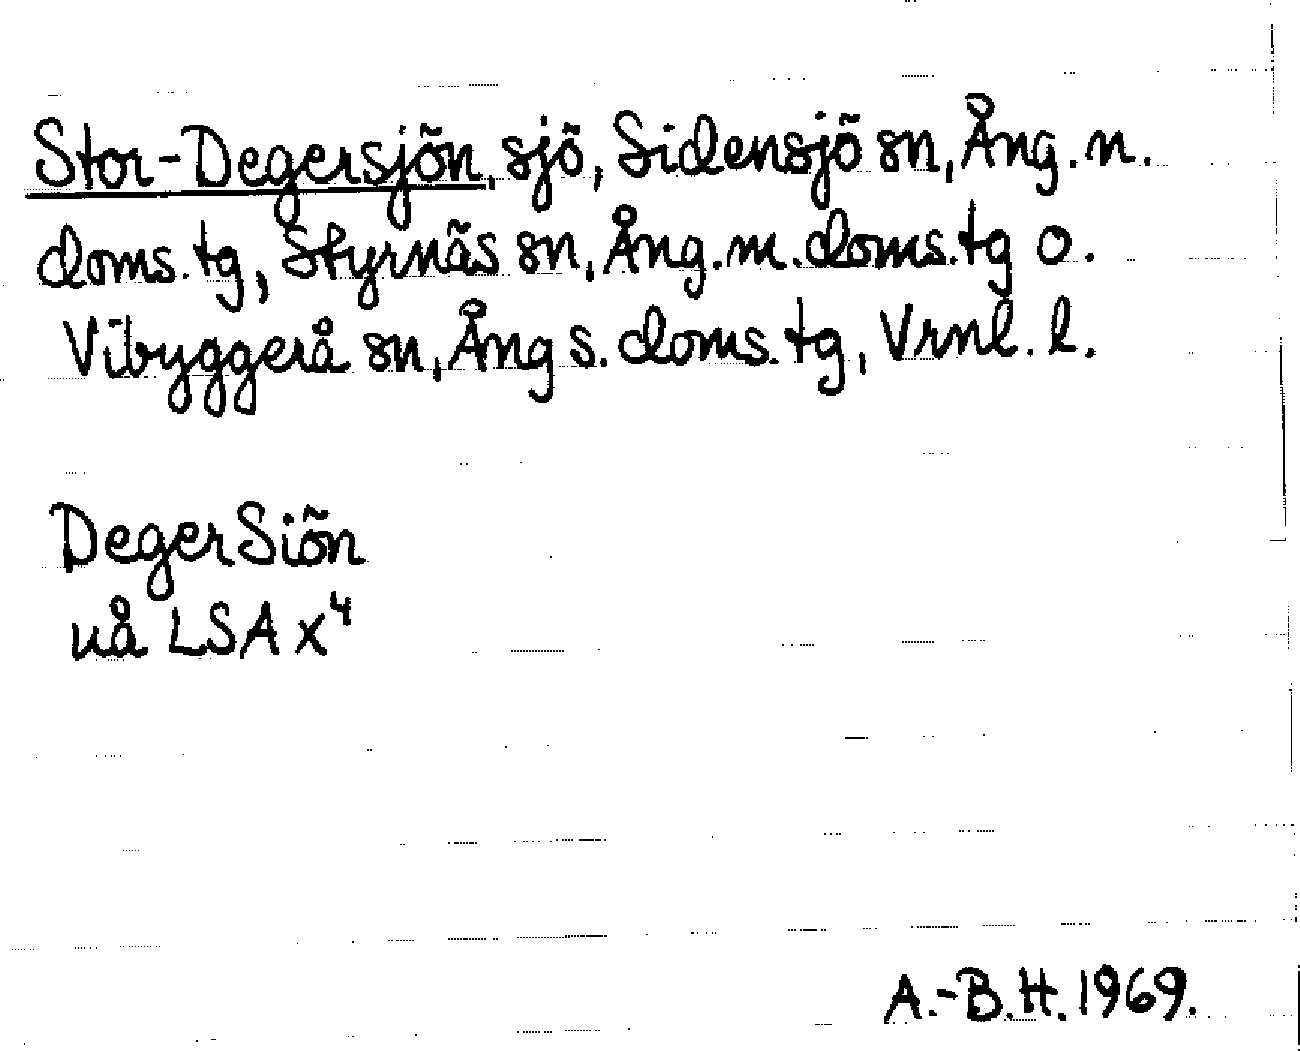 Stor-Degersjön, sjö, Sidensjö sn, Ång. n.
doms. tg, Styrnäs sn, Ång. m. doms. tg o.
Vibyggerå sn, Ång s. doms. tg, Vrnl. l.
DegerSiön
uå LSA x⁴
A.-B.H. 1969.